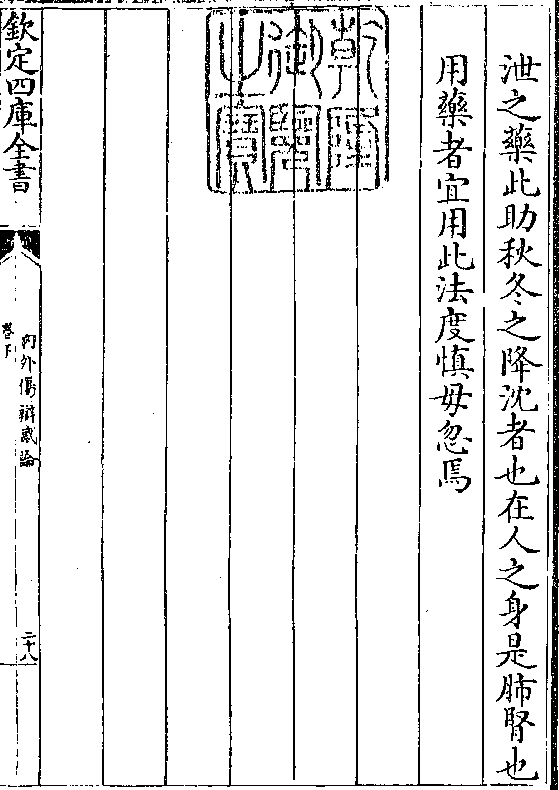 泄之藥此助秋冬之降沈者也在人之身是肺腎也
用藥者宜用此法度慎毋忽焉
乾隆御覽之寶
欽定四庫全書
內外傷辯惑論
卷下
二十八